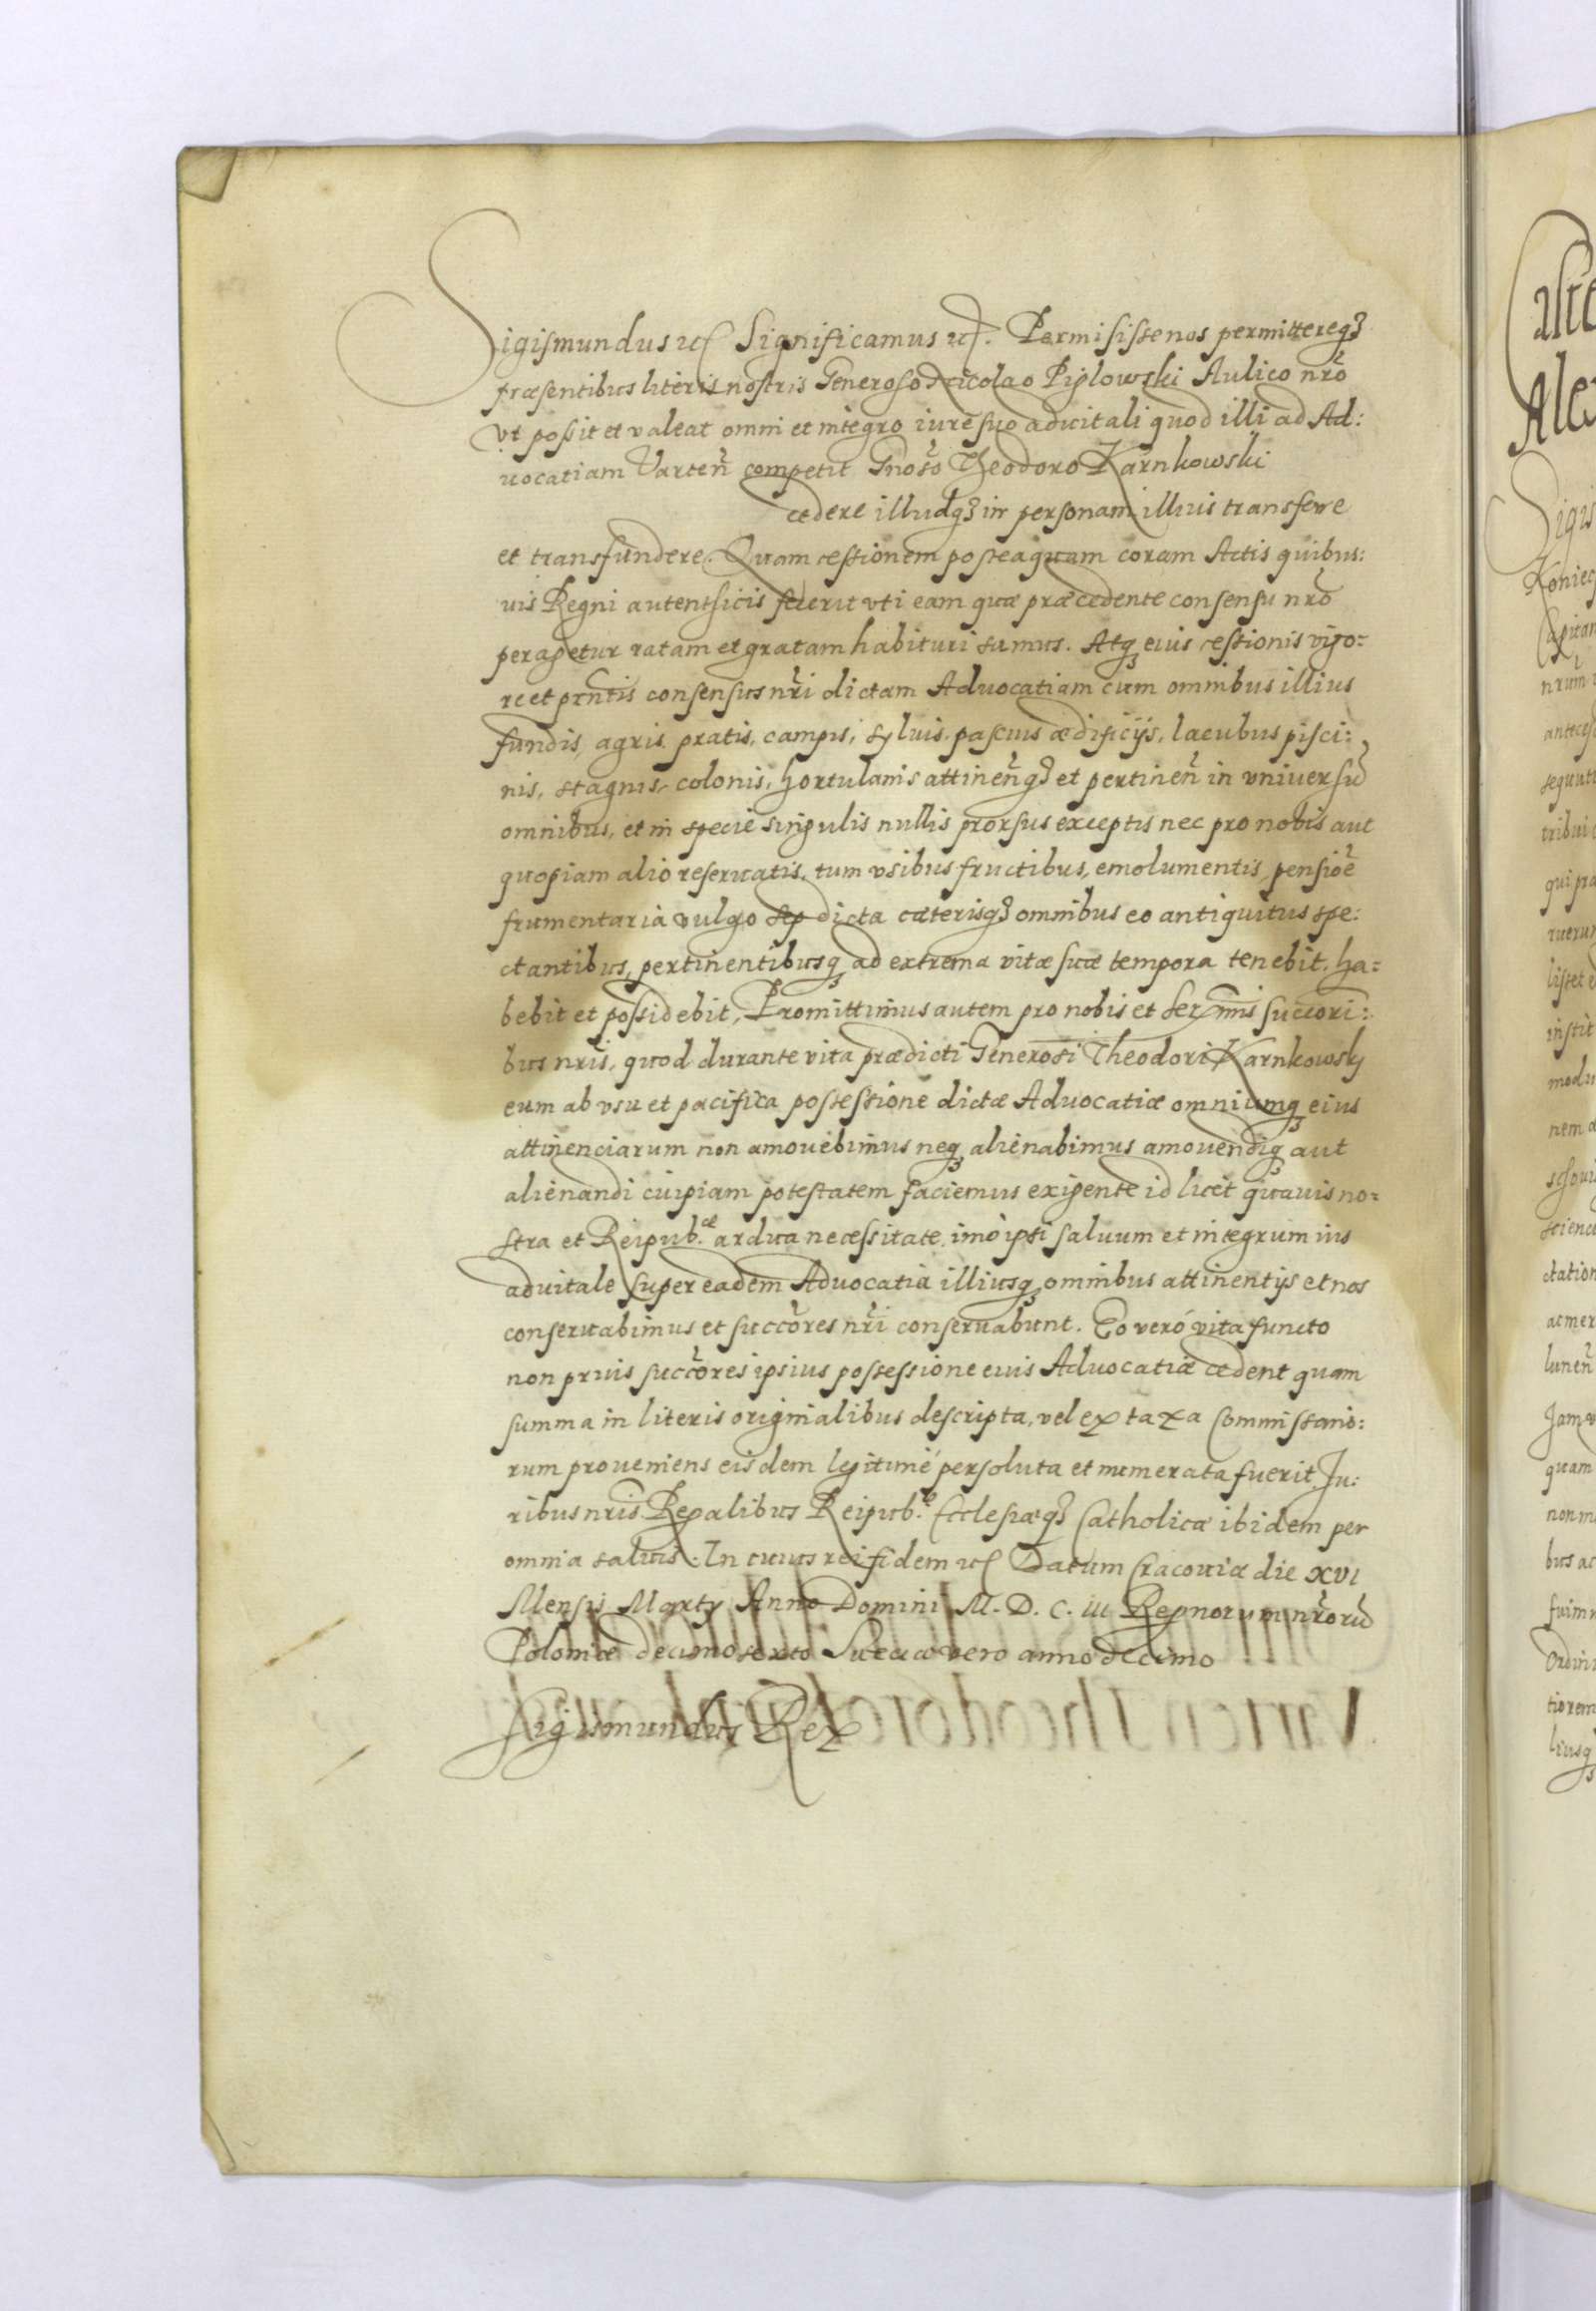 Sigismundus etc Significamus etc. Permisisse nos permittereq3
præsentibus literis nostris Generoso Nicolao Piglowski Aulico nrõ
vt possit et valeat omni et integro iure suo aduitali quod illi ad Ad:
uocatiam Varten̄ competit Gnoso Theodoro Karnkowski
cedere illudq3 in personam illius transferre
et transfundere. Quam cessionem posteaquam coram Actis quibus:
uis Regni autenthicis fecerit vti eam quæ præcedente consensu nrõ
peragetur ratam et gratam habituri sumus. Atq3 eius cessionis vigo:
re et prñtis consensus nri dictam Aduocatiam cum omnibus illius
fundis, agris, pratis, campis, syluis, pascuis ædificijs, lacubus pisci:
nis, stagnis, colonis, hortulanis attinen̄q3 et pertinen̄ in vniuersũ
omnibus, et in specie singulis nullis prorsus exceptis nec pro nobis aut
quopiam alio reseruatis, tum vsibus fructibus, emolumentis, pensioẽ
frumentaria vulgo sep dicta cæterisq3 omnibus eo antiquitus spe:
ctantibus, pertinentibusq3 ad extrema vitæ suæ tempora tenebit, ha:
bebit et possidebit, Promittimus autem pro nobis et Sermis succori:
bus nris, quod durante vita prædicti Generosi Theodori Karnkowsky
eum ab vsu et pacifica possessione dictæ Aduocatiæ omniumq3 eius
attinenciarum non amouebimus neq3 alienabimus amouendiq3 aut
alienandi cuipiam potestatem faciemus exigente id licet quauis no:
stra et Reipub.cæ ardua necessitate, imò ipsi saluum et integrum ius
aduitale super eadem Aduocatia illiusq3 omnibus attinentijs et nos
conseruabimus et succores nri conseruabunt. Eo verò vita functo
non prius succores ipsius possessione eius Aduocatiæ cedent quam
summa in literis originalibus descripta, vel ex taxa Commissario:
rum proueniens eisdem legitimè persoluta et numerata fuerit. Iu:
ribus nris Regalibus Reipub.æ Ecclesiæq3 Catholicæ ibidem per
omnia saluis. In cuius rei fidem etc Datum Cracouiæ die XVI
Mensis Martij Anno Domini M. D. C. iii Regnorum nrorũ
Poloniæ decimo sexto Sueciæ vero anno decimo
Sigismundus Rex